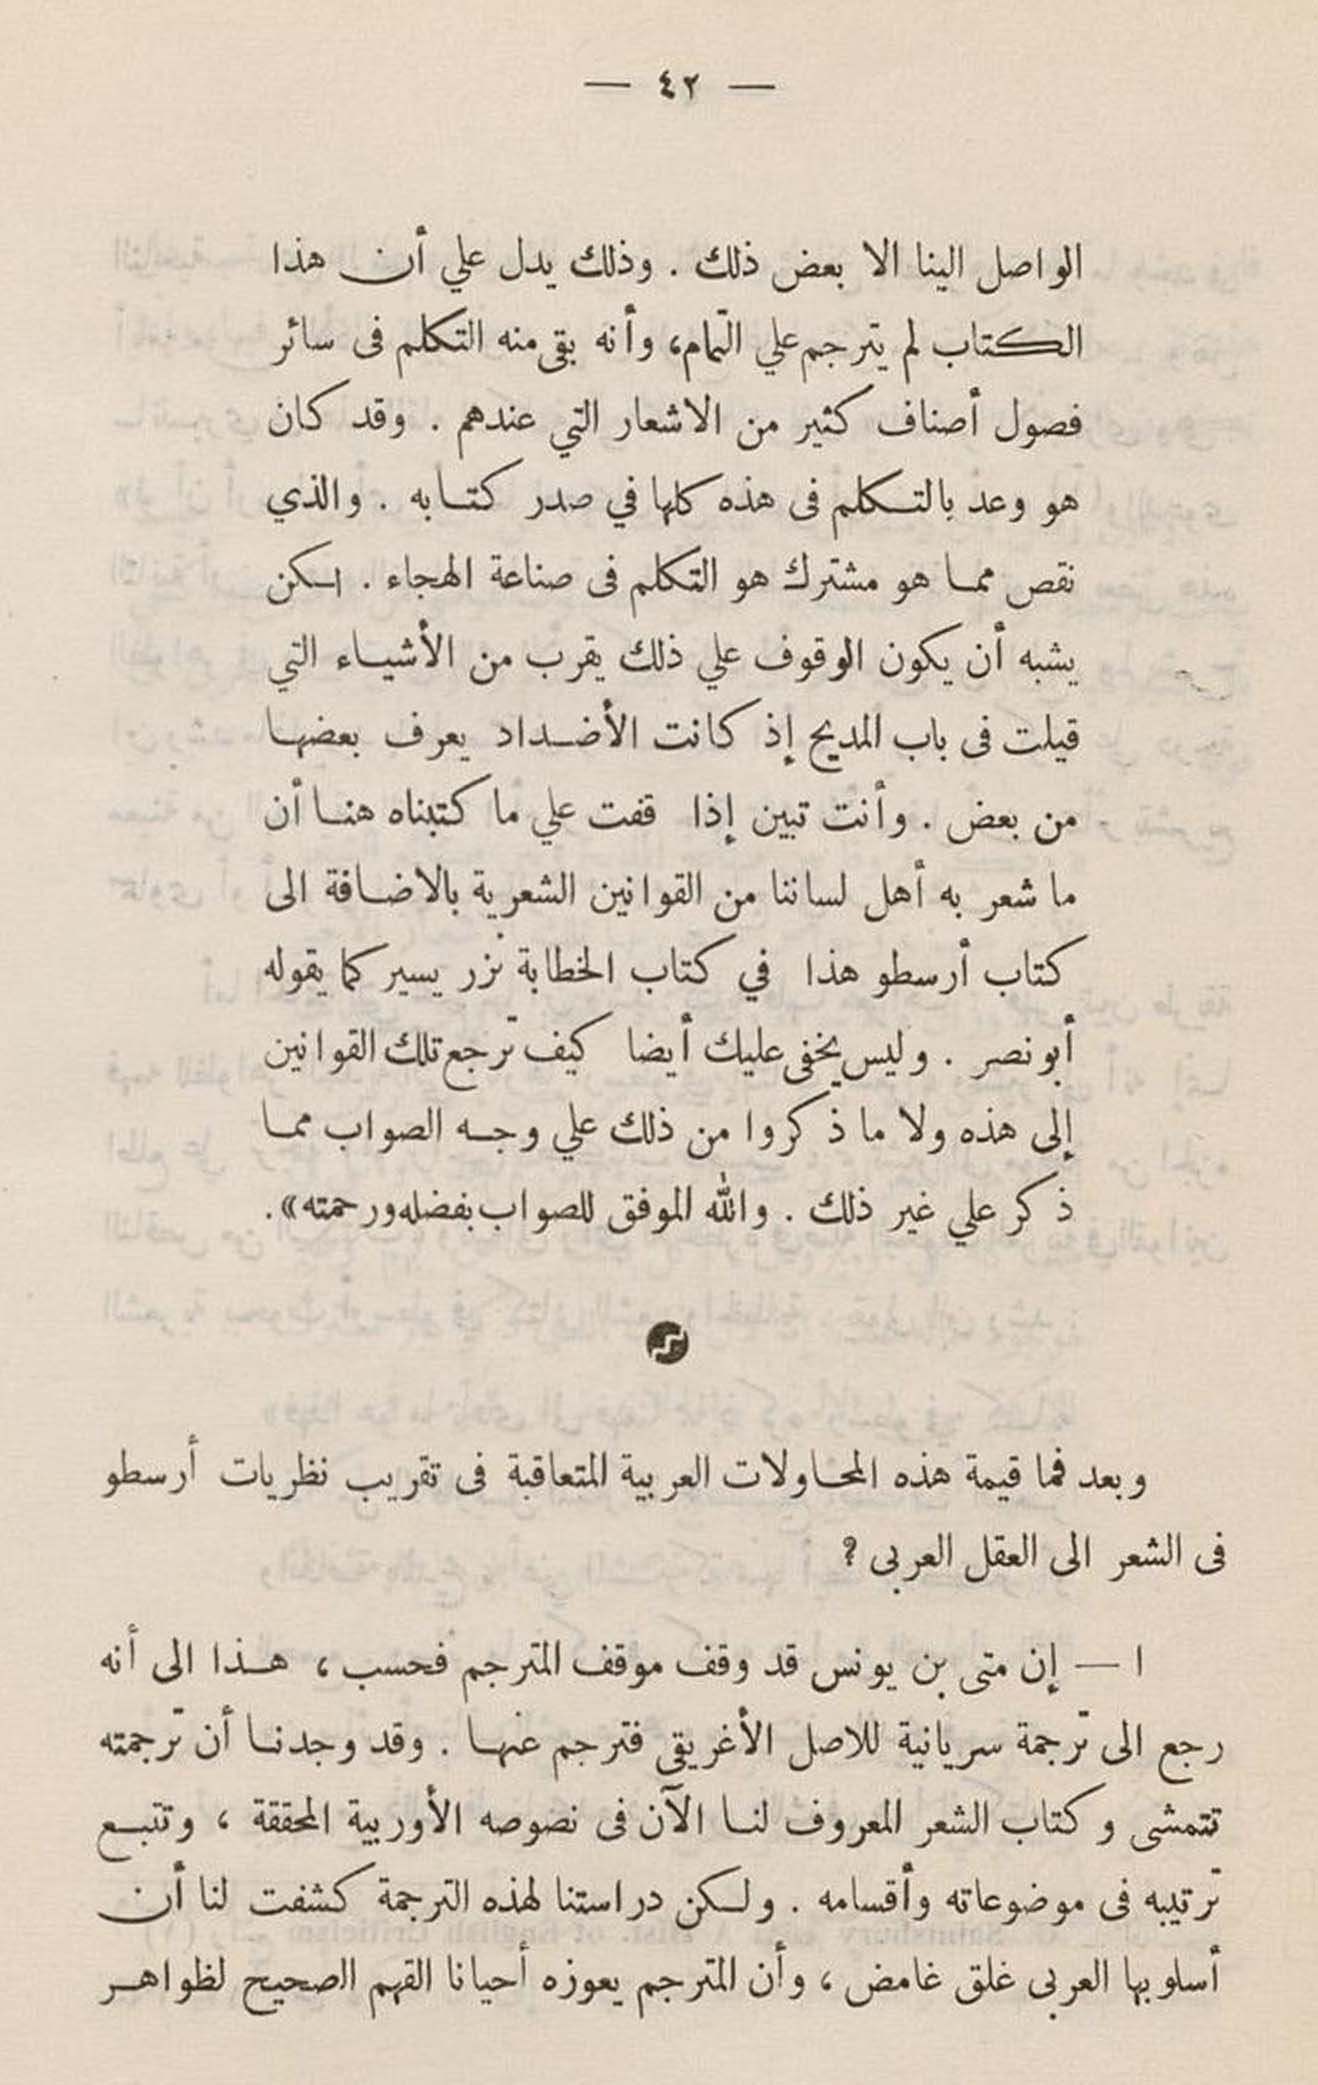 — ٤٢ —
الواصل الينا الا بعض ذلك . وذلك يدل علي أن هذا
الكتاب لم يترجم علي التمام، وأنه بقى منه التكلم فى سائر
فصول أصناف كثير من الاشعار التي عندهم . وقد كان
هو وعد بالتكلم فى هذه كلها في صدر كتابه . والذي
نقص مما هو مشترك هو التكلم فى صناعة الهجاء . لكن
يشبه أن يكون الوقوف علي ذلك يقرب من الأشياء التي
قيلت فى باب المديح إذ كانت الأضداد يعرف بعضها
من بعض . وأنت تبين إذا قفت علي ما كتبناه هنا أن
ما شعر به أهل لساننا من القوانين الشعرية بالاضافة الى
كتاب أرسطو هذا في كتاب الخطابة نزر يسير كما يقوله
أبو نصر . وليس يخفى عليك أيضا كيف ترجع تلك القوانين
إلى هذه ولا ما ذكروا من ذلك علي وجه الصواب مما
ذكر علي غير ذلك . والله الموفق للصواب بفضله ورحمته» .
وبعد فما قيمة هذه المحاولات العربية المتعاقبة فى تقريب نظريات أرسطو
فى الشعر الى العقل العربى ؟
١ — إن متى بن يونس قد وقف موقف المترجم فحسب ، هذا الى أنه
رجع الى ترجمة سريانية للاصل الأغريقى فترجم عنها . وقد وجدنا أن ترجمته
تتمشى وكتاب الشعر المعروف لنا الآن فى نصوصه الأوربية المحققة ، وتتبع
ترتيبه فى موضوعاته وأقسامه . ولكن دراستنا لهذه الترجمة كشفت لنا أن
أسلوبها العربى غلق غامض ، وأن المترجم يعوزه أحيانا الفهم الصحيح لظواهر